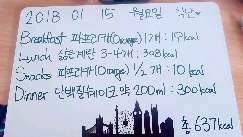 2018 01 15 월요일 식단
Breakfast 파프리카(Orange) 1개 : 19 kcal
Lunch 삶은계란 3-4개 : 308 kcal
Snacks 파프리카(Orange) 1/2개 : 10 kcal
Dinner 단백질쉐이크 약 200ml : 300 kcal
총 637 kcal